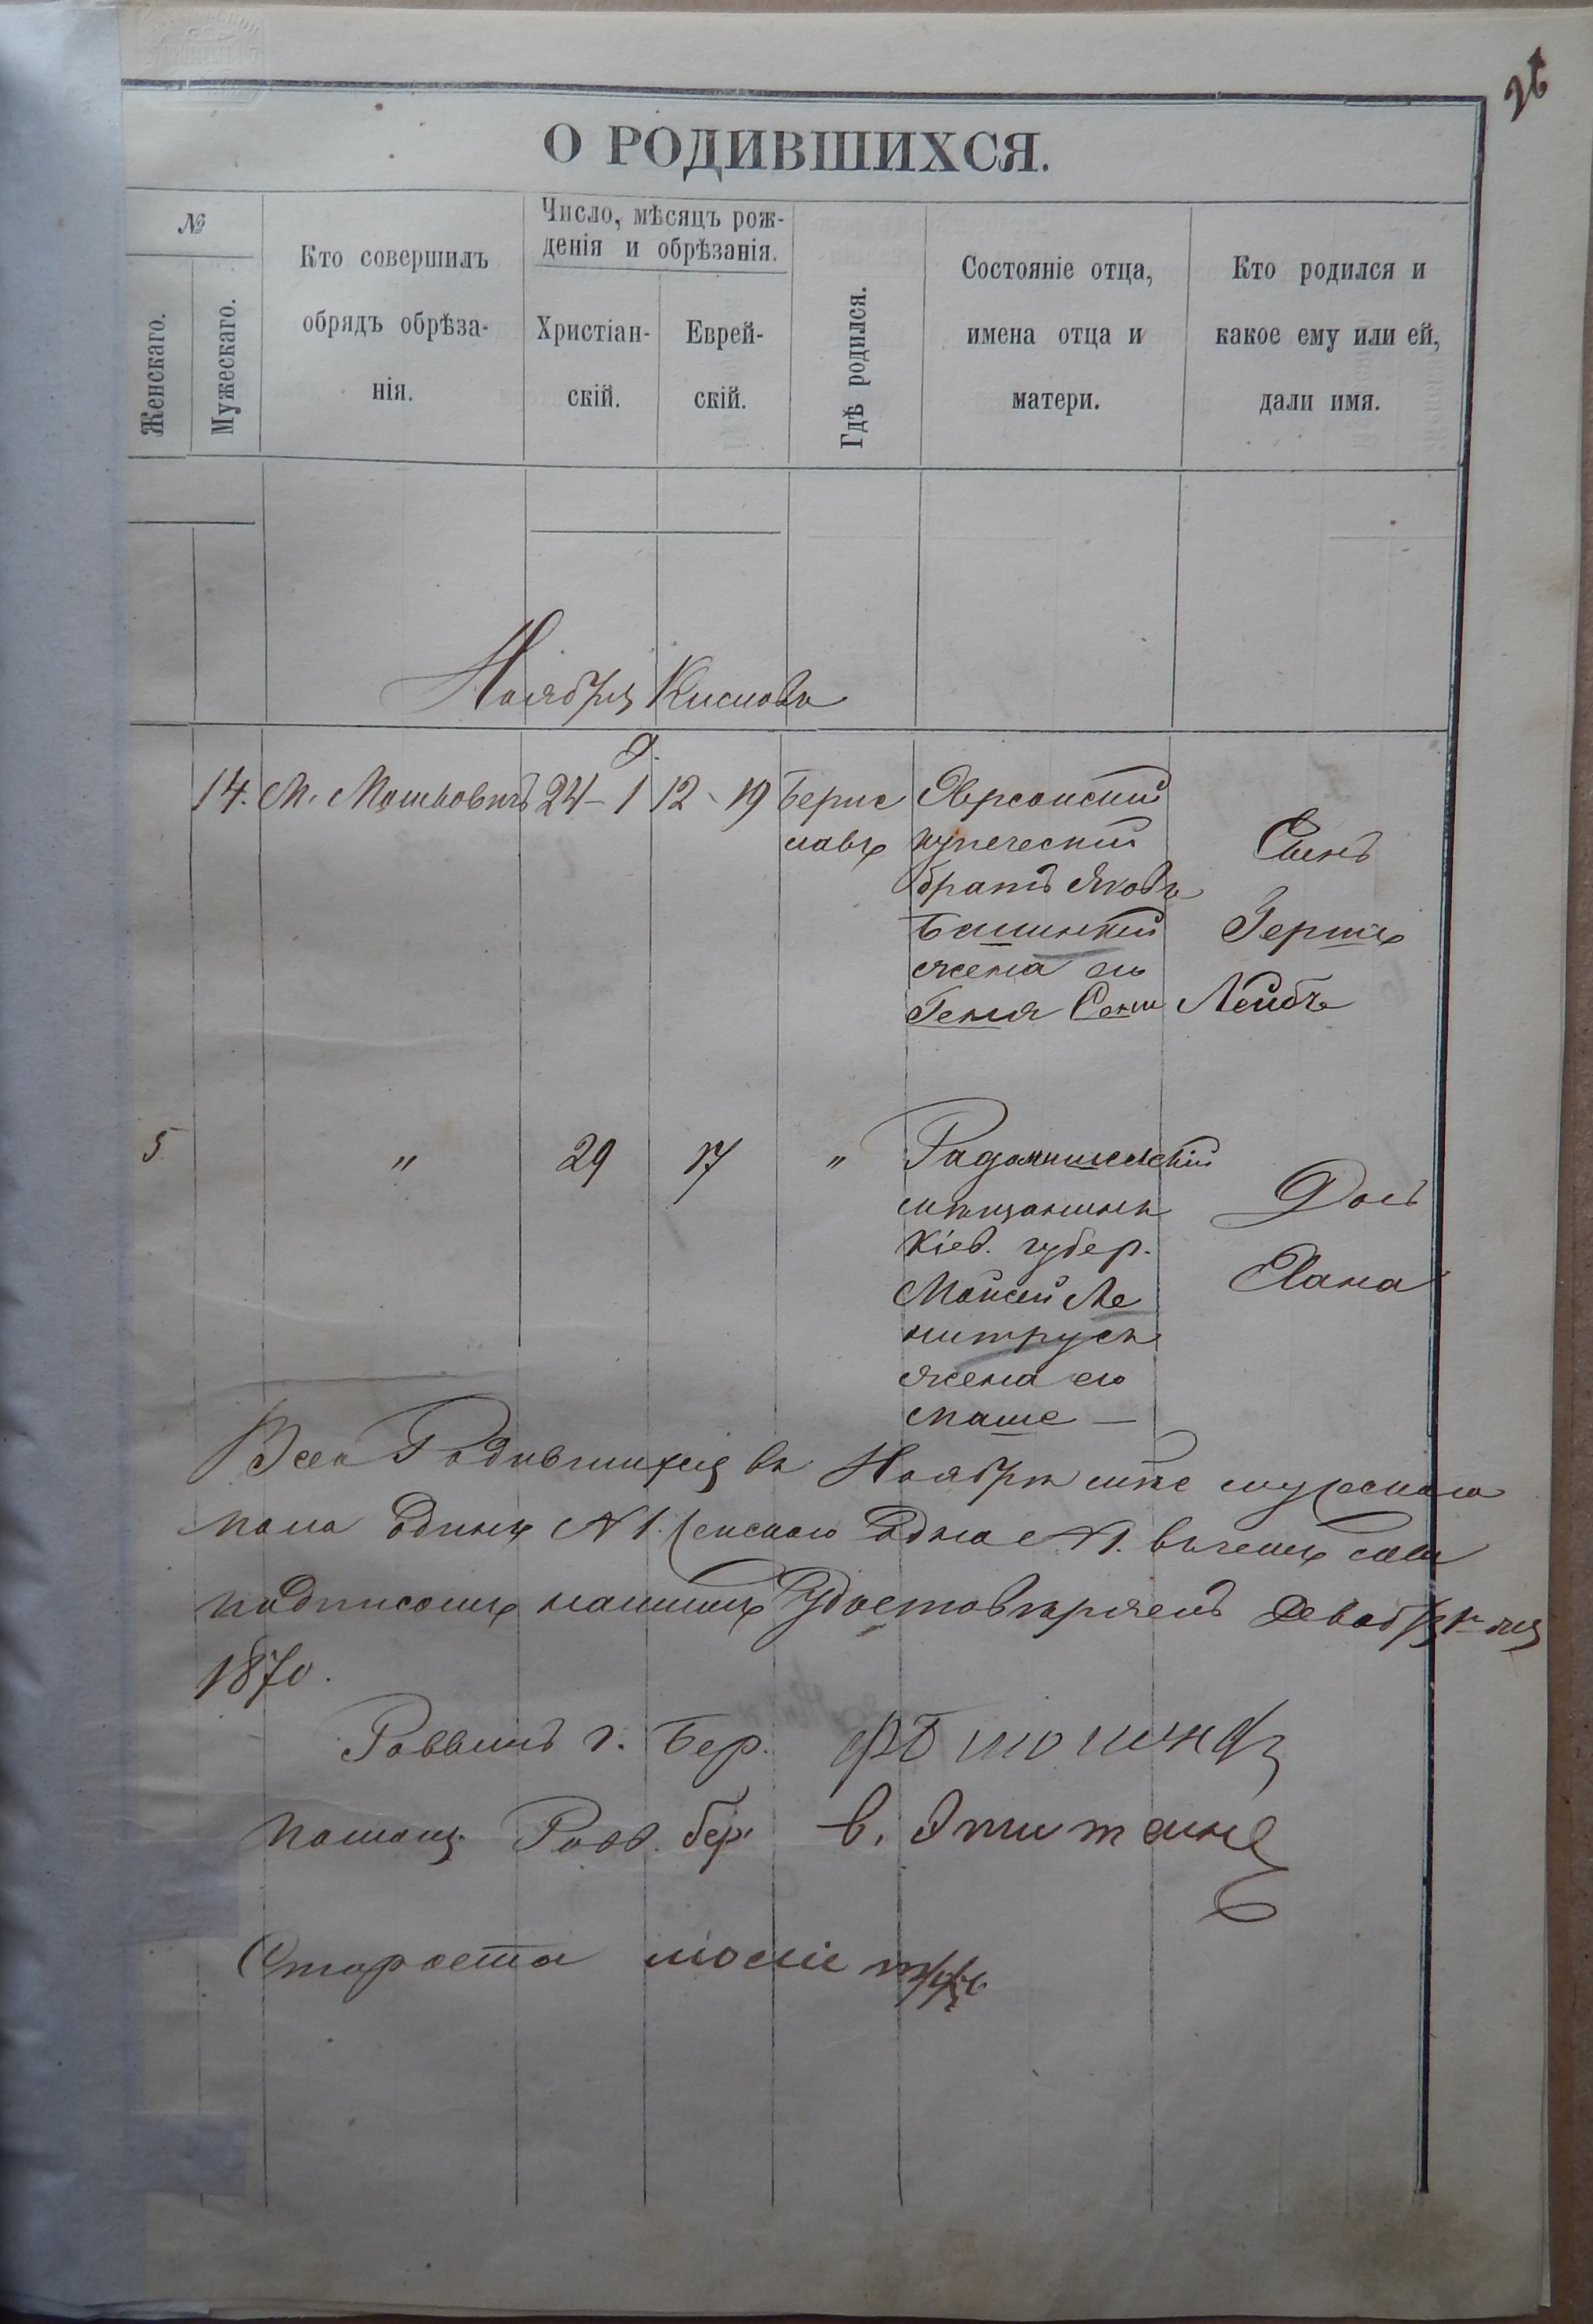 26
О РОДИВШИХСЯ.
№
Женскаго.
Мужескаго.
Кто совершилъ
обрядъ обрѣза-
нія.
Число, мѣсяцъ рож-
денія и обрѣзанія.
Христіан-
скій.
Еврей-
скій.
Гдѣ родился.
Состояніе отца,
имена отца и
матери.
Кто родился и
какое ему или ей,
дали имя.
Ноябрь Кислова
14. М. Машковичъ 24 – 1 12 – 19 Берис
лавѣ
Херсонскій
купеческій
братъ Яковъ
жена его
Геня
Сынъ
Герша
Лейбъ
5 " 29 17 "
Радомысльскій
мѣщанинъ
Кіев. губер.
Моисей
жена его
Дочь
Хана
Всего Родившихся въ Ноябрѣ м-цѣ мужескаго
пола Одинъ № 1. женскаго Одна № 1. въ чемъ
подписомъ нашимъ Удостовѣряемъ Декабря 1 дня
1870.
Раввинъ г. Бер.
помощ. Равв. бер. В.
Староста